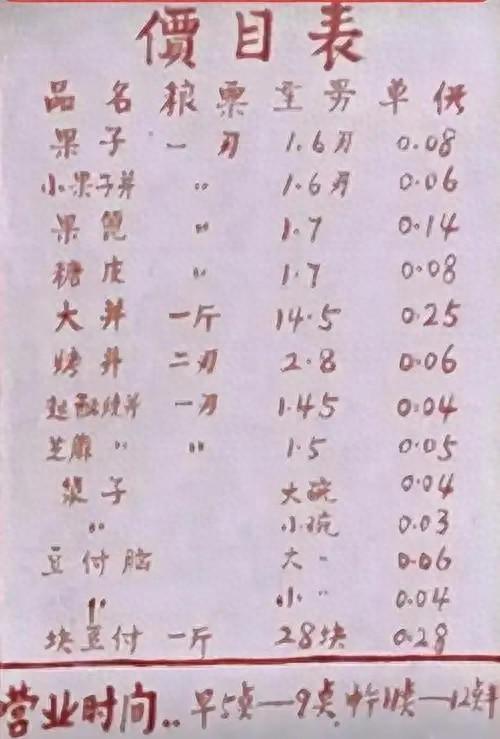 價目表
品名 粮票 至另 单供
果子 一刃 1.6刃 0.08
小果子并 〃 1.6刃 0.06
果篦 〃 1.7 0.14
糖皮 〃 1.7 0.08
大并 一斤 14.5 0.25
烤并 二刃 2.8 0.06
起酥烧并 一刃 1.45 0.04
芝麻〃 〃 1.5 0.05
浆子 大碗 0.04
〃 小碗 0.03
豆付脑 大〃 0.06
〃 小〃 0.04
块豆付 一斤 28块 0.28
营业时间..早5点—9点,中午11点—12点半